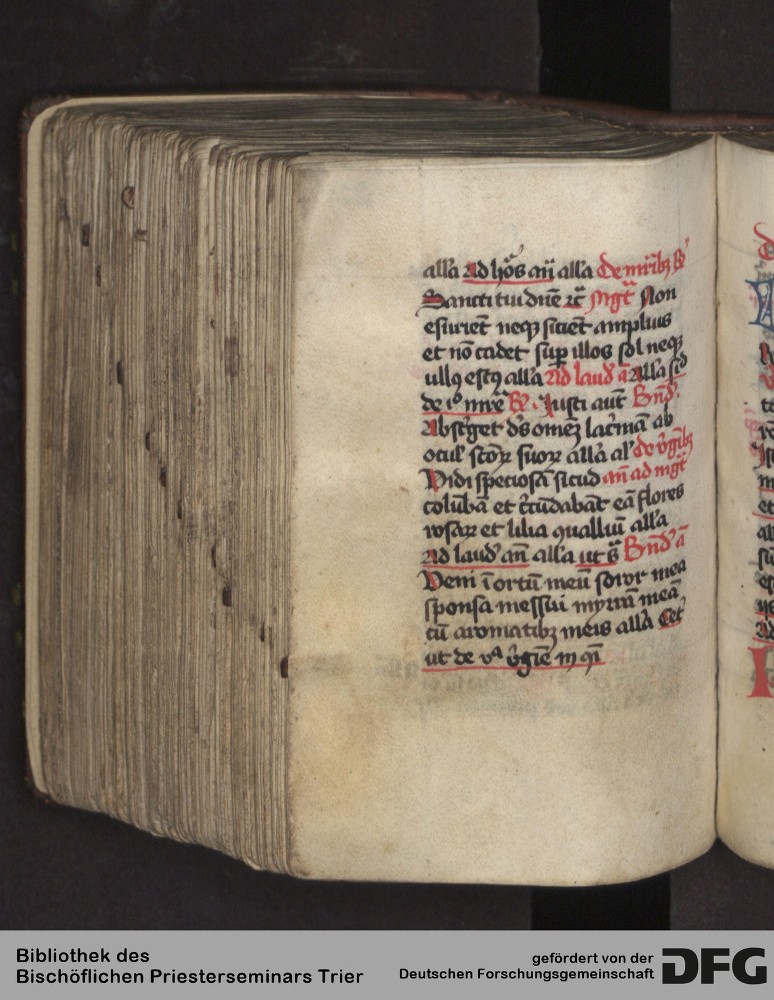 all'a Ad ho᷒s añ all'a De mr̄ibꝫ ℟
Sancti tui dn̄e ⁊c̄ Mgt̄ Non
esurieт̄ neqꝫ sicient amplius
et nō cadet suꝑ illos sol neqꝫ
ullꝰ estꝰ all'a Ad laud' ā all'a sic
de iº mr̄e ℟ Justi aut̄ Bn̄d'
Abst'get d's om̄eꝫ lac'mā ab
ocul' scōꝝ suoꝝ all'a al' de v'ginibꝫ
Vidi speciosā sicud añ ad mgt̄
colūbā et c'cūdabāt eā flores
rosaꝝ et lilia qualliū all'a
Ad laud' añ all'a ut s' Bn̄d' ā
Veni ī ortū meū soror mea
sponsa messui myrrā meā
cū aromatibꝫ meis all'a Cet'
ut de vª v'gīe
Bibliothek des
Bischöflichen Priesterseminars Trier
gefördert von der
Deutschen Forschungsgemeinschaft
DFG